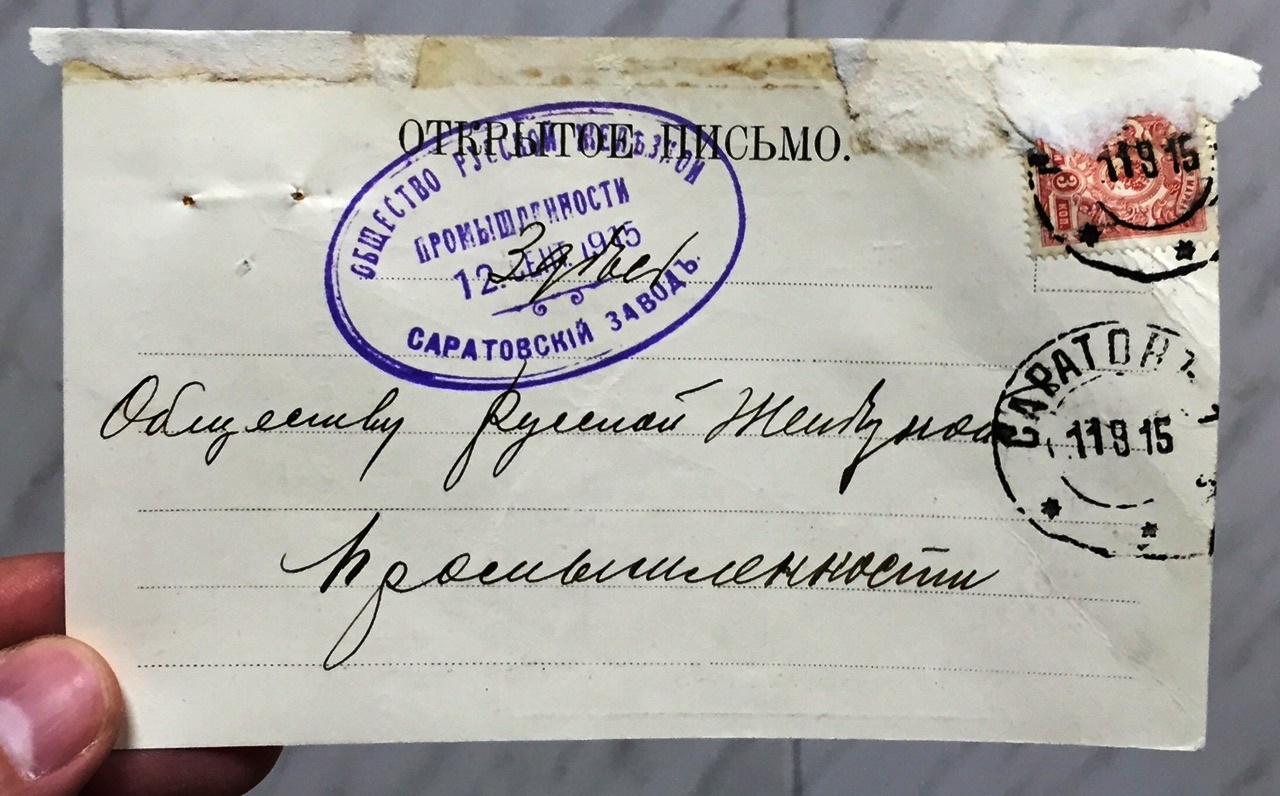 ОТКРЫТОЕ ПИСЬМО.
ОБЩЕСТВО РУССКОЙ ЖЕЛѢЗНОЙ
ПРОМЫШЛЕННОСТИ
12 СЕНТ. 1915
САРАТОВСКІЙ ЗАВОДЪ.
Здѣсь
11 9 15
3
КОП
САРАТОВЪ
11 9 15
Обществу Русской Желѣзной
Промышленности